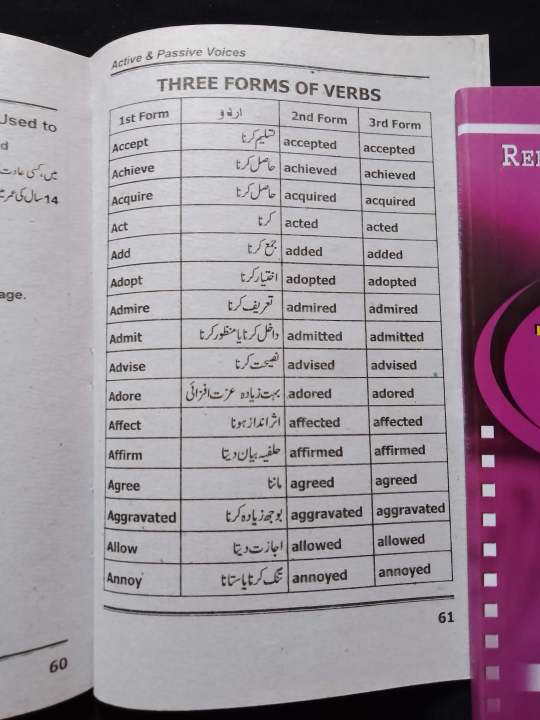 Used to
d
میں، کسی عادت
14 سال کی عمر میں
age.
60
Active & Passive Voices
THREE FORMS OF VERBS
1st Form اردو 2nd Form 3rd Form
Accept تسلیم کرنا accepted accepted
Achieve حاصل کرنا achieved achieved
Acquire حاصل کرنا acquired acquired
Act کرنا acted acted
Add جمع کرنا added added
Adopt اختیار کرنا adopted adopted
Admire تعریف کرنا admired admired
Admit داخل کرنا یا منظور کرنا admitted admitted
Advise نصیحت کرنا advised advised
Adore بہت زیادہ عزت افزائی adored adored
Affect اثر انداز ہونا affected affected
Affirm حلفیہ بیان دینا affirmed affirmed
Agree ماننا agreed agreed
Aggravated بوجھ زیادہ کرنا aggravated aggravated
Allow اجازت دینا allowed allowed
Annoy تنگ کرنا یا ستانا annoyed annoyed
61
REN